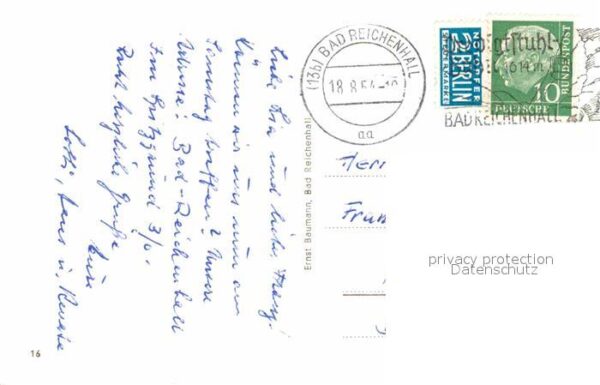 Liebe Lia und lieber Franz!
Können wir uns nun am
Sonntag treffen? Unsere
Adresse: Bad-Reichenhall
Im Spitzgrund 3/0.
Recht herzliche Grüße
Eure
Lotti, Hans u. Renate
16
Ernst Baumann, Bad Reichenhall
(13b) BAD REICHENHALL
18.8.54
aa
NOTOPFER
2 BERLIN
STEUERMARKE
Predigtstuhl
BAD REICHENHALL
10
DEUTSCHE
BUNDESPOST
Herr
Fran
privacy protection
Datenschutz